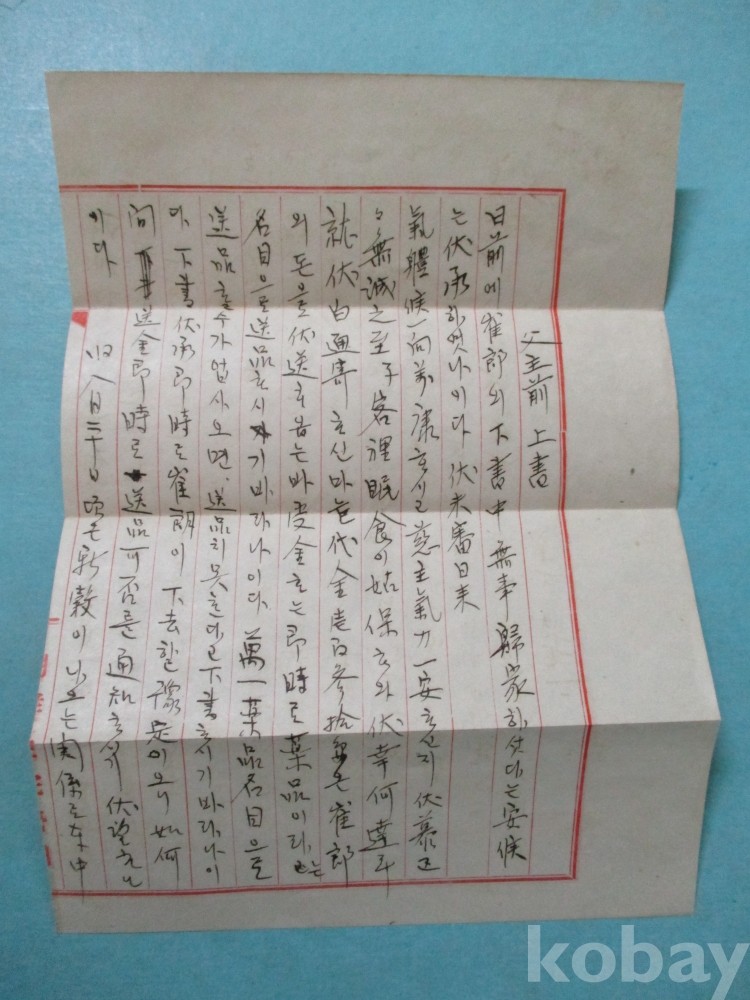 父主前 上書
日前에 崔郎의 下書中 無事 歸家하섯다는 安候
는 伏承하엿나이다 伏未審日來
氣體候一向萬康하시고 慈主氣力一安하신지 伏慕區
區無誠之至 子 客裡眠食이 姑保하와 伏幸何達耳
就伏白 通寄하신 마늘代金 백參拾 은 崔郎
의 돈을 伏送하옵는바 受金하는 即時로 藥品이라는
名目으로 送品하시기 바라나이다 萬一 藥品名目으로
送品할수가 업사오면 送品치 못한다고 下書하시기 바라나이
다 下書伏承即時로 崔郎이 下去할 豫定이오니 如何
間 送金即時로 送品 可否를 通知하심기 伏望하나
이다
八日二十日 頃은 新穀이 나오는 関係로 中
kobay